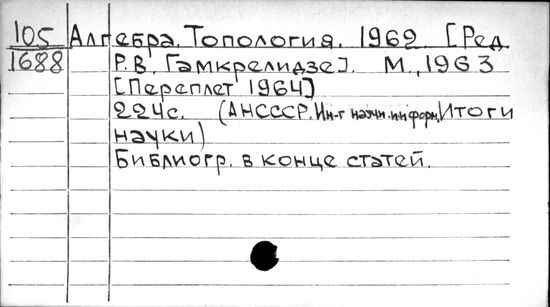 105 Алгебра. Топология. 1962 [Ред.
1688 Р.В. Гамкрелидзе]. М., 1963
[Переплет 1964]
224с. (АНСССР. Ин-т научн. информ. Итоги
науки)
Библиогр. в конце статей.